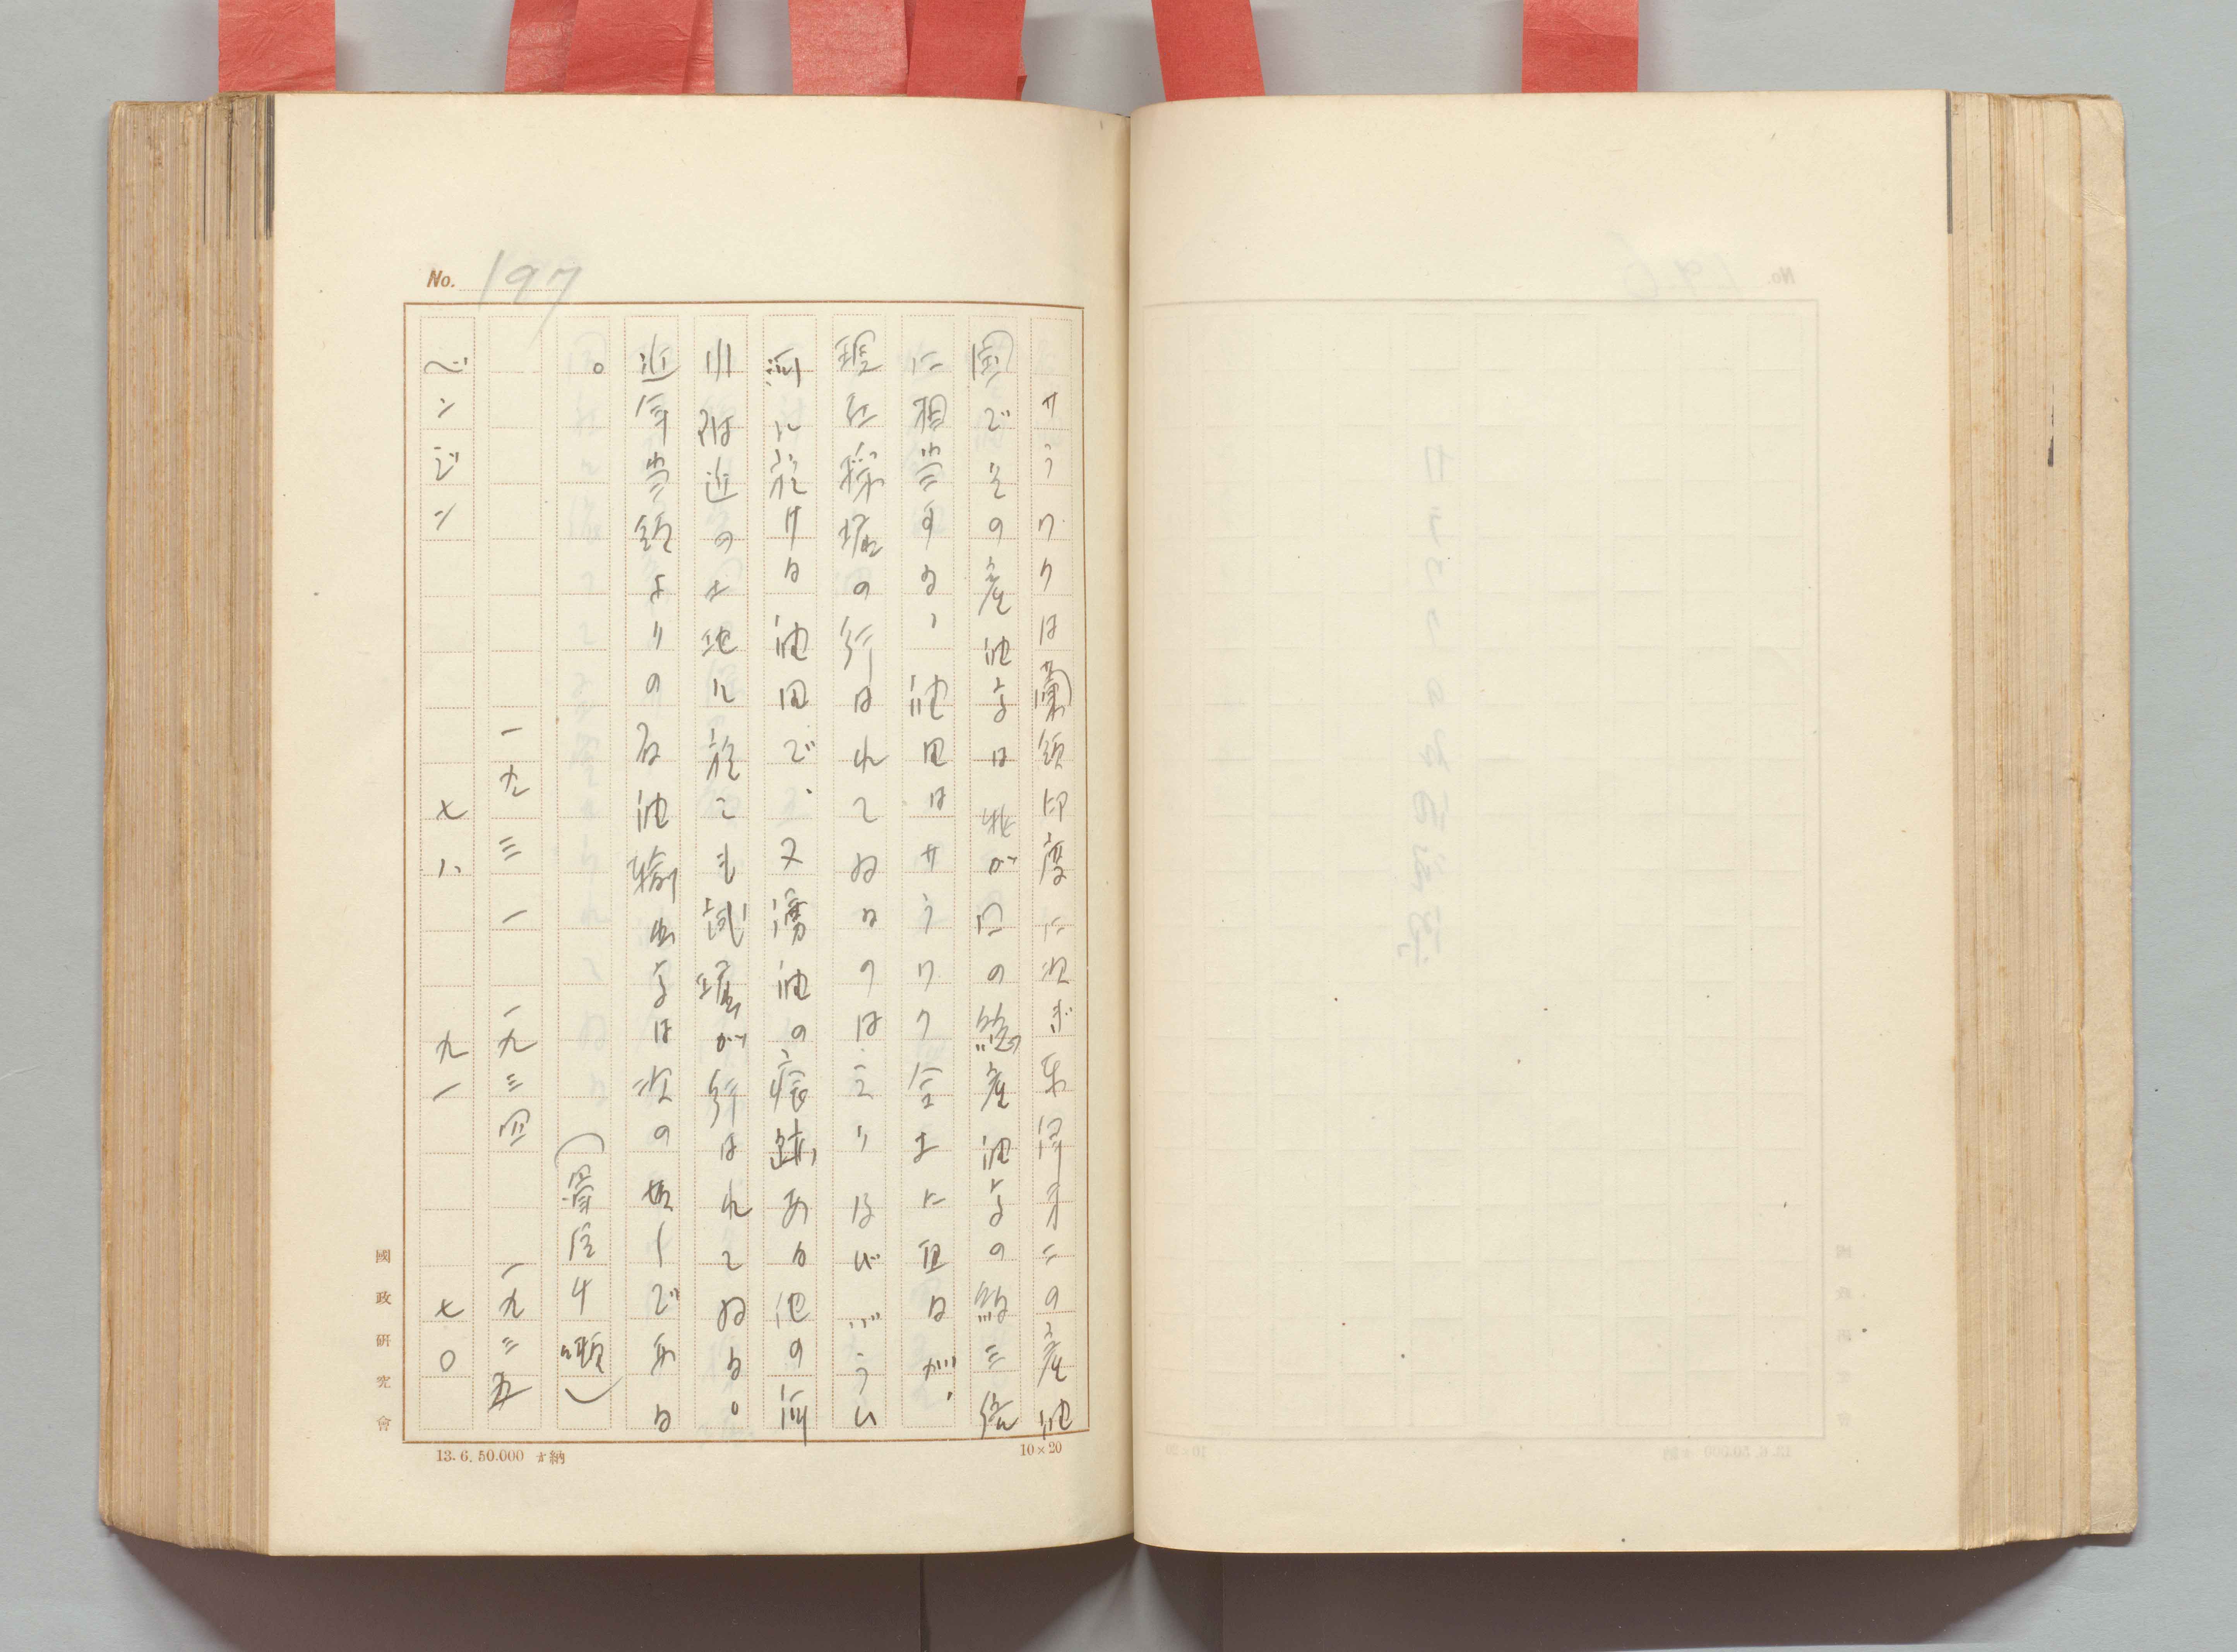 No. 197
サラワクは蘭領印度に次ぎ東洋第二の産油
国でその産油高は我が国の総産油高の約三倍
に相当する、油田はサラワク全土に亘るが、
現在採堀の行はれてゐるのはミリ及びバラム
河に於ける油田で、又湧油の痕跡ある他の河
川附近の土地に於ても試堀が行はれてゐる。
近年当領よりの石油輸出高は次の如しである
。 (單位千噸)
一九三一 一九三四 一九三五
ベンジン 七八 九一 七〇
國政研究會
13.6.50.000 納
10×20